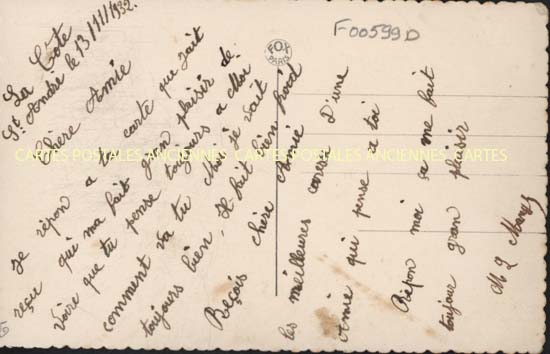 La Côte
St André le 13/III/1932.
Chère Amie
Je répon a ta carte que jait
reçu qui ma fait gran plaisir de
voire que tu pense toujours a Moi
comment va tu Moi je vait
toujours bien, il fait bien froid
Reçois chère Aimée
les meilleures caresse D'une
Amie qui pense a toi
Répon moi ça me fait
toujour gran plaisir
F00599D
FOX
PARIS
CARTES POSTALES ANCIENNES CARTES POSTALES ANCIENNES CARTES